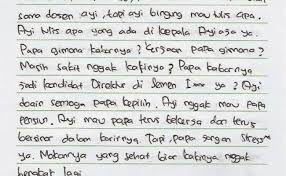 sama dosen Ayi, tapi ayi bingung mau tulis apa.
Ayi tulis apa yang ada di kepala Ayi aja ya.
Papa gimana kabarnya? Kerjaan papa gimana?
Masih sakit nggak kakinya? Papa kabarnya
jadi kandidat Direktur di Semen I ya? Ayi
doain semoga papa kepilih. Ayi nggak mau papa
pensiun. Ayi mau papa terus bekerja dan terus
bersinar dalam karirnya. Tapi, papa jangan stress
ya. Makannya yang sehat biar kakinya nggak
bengkak lagi.